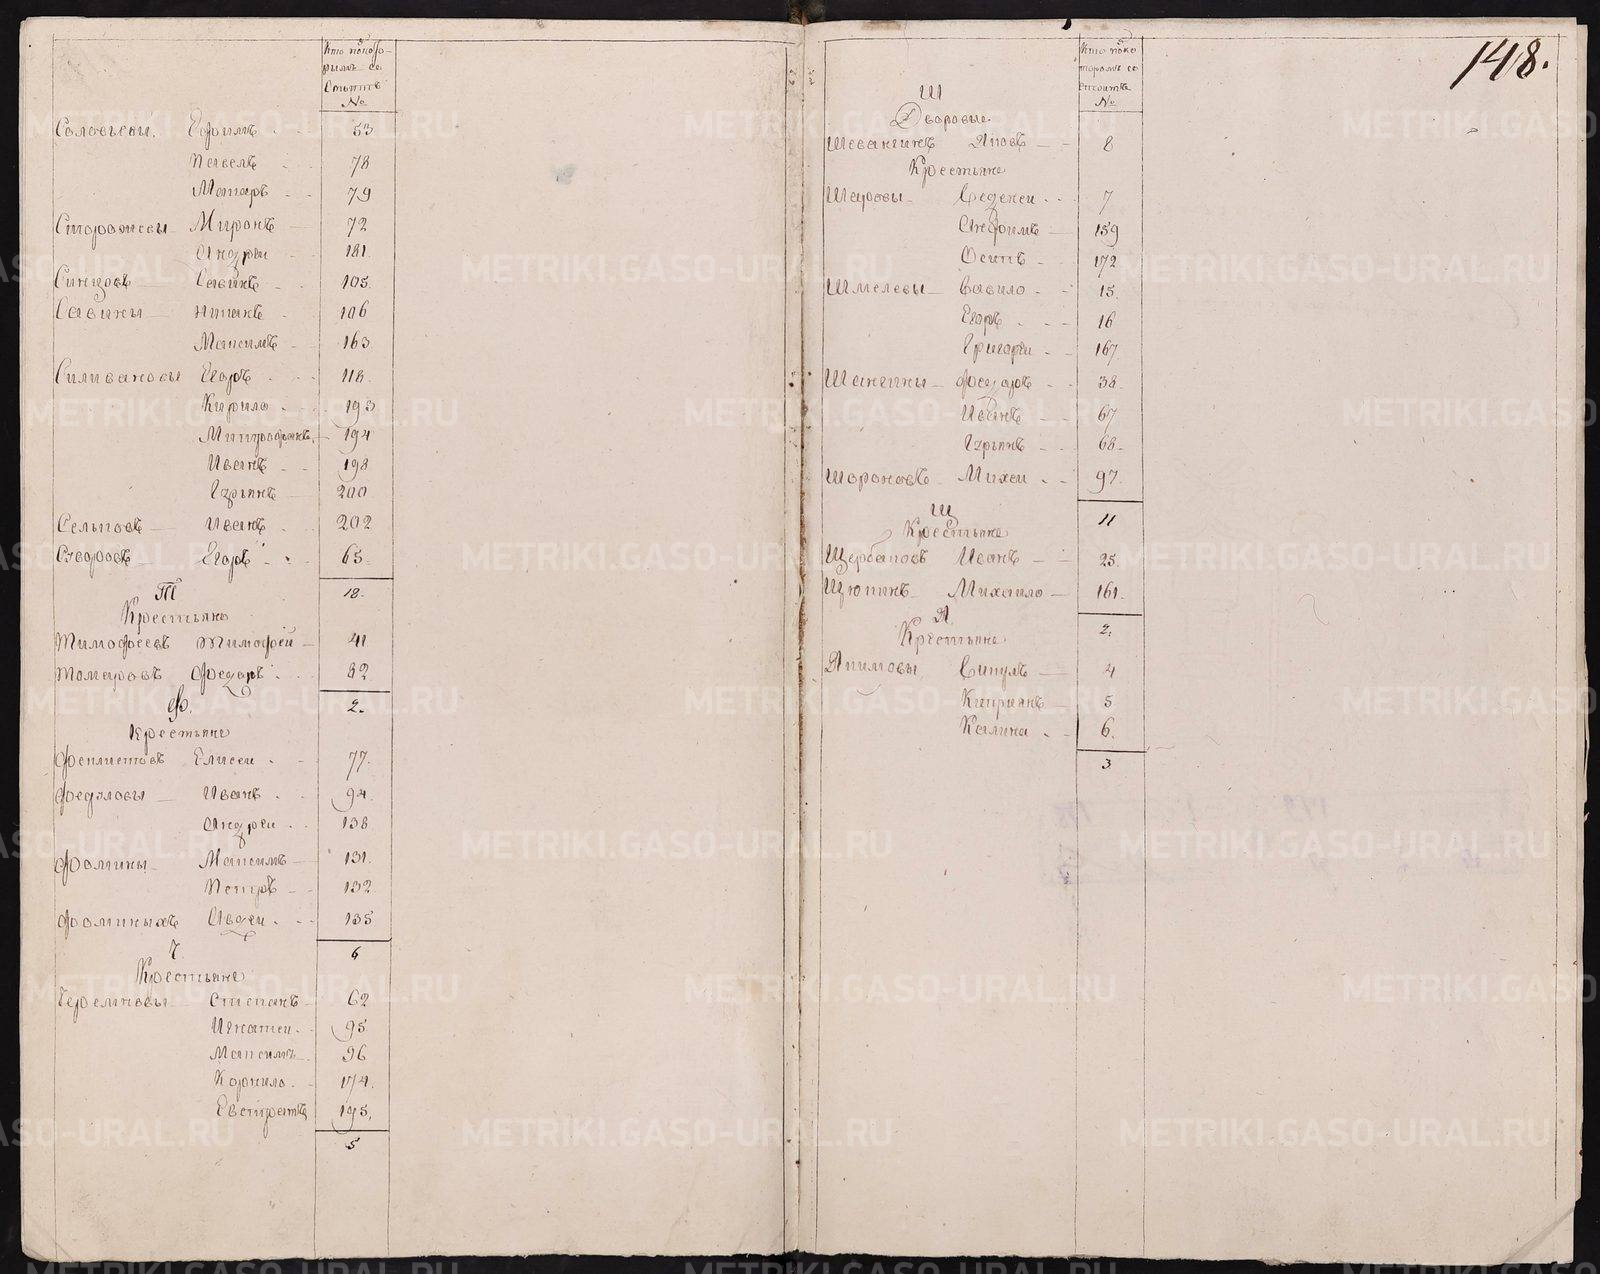 Кто подкото-
рымъ со
стоитъ
№
Соловьевы. Ефимъ 53
Павелъ 78
Макаръ 79
Сторожевы Миронъ 72
Андреи 181.
Синцовъ Савинъ 105.
Савины 106
Максимъ 163
Силивановы Егоръ 118.
Кирило 193
Митрофанъ 194
Иванъ 198
Гурьянъ 200
Иванъ 202
Суворовъ Егоръ 65.
18.
Т
Крестьяне
Тимофеевъ Тимофей 41
Федоръ 82
2.
Ф.
Крестьяне
Феклистовъ Елисеи 77.
Федуловы Иванъ 94.
Андреи 138
Фомины Максимъ 131.
Петръ 132
Фоминыхъ Авдеи 135
6
Ч.
Крестьяне
Черемновы Степанъ 62
Игнатеи 95
Максимъ 96
Корнило 174.
Евстратъ 195.
5
148.
Кто подко
торомъ со
стоитъ
№
Ш
Дворовые
Шевангинъ Яковъ 8
Крестьяне
7
Анфимъ 159
Осипъ 172
Шмелевы Вавило 15.
Егоръ 16
Григореи 167
Шангины Федоръ 38.
Иванъ 67
Гурьянъ 68.
Шороховъ Михеи 97.
11
Щ
Крестьяне
Щербаковъ Иванъ 25.
Щюкинъ Михаило 161.
2.
Я
Крестьяне
Якимовы Викулъ 4
Киприянъ 5
Калина 6.
3